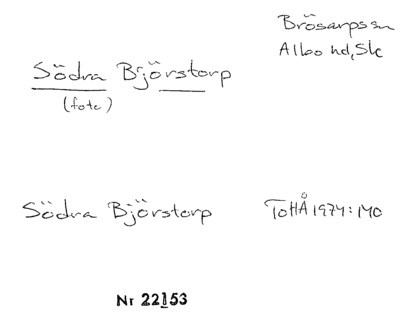 Brösarps sn
Albo hd, Sk
Södra Björstorp
(foto)
Södra Björstorp
ToHÅ 1974: MO
Nr 22153